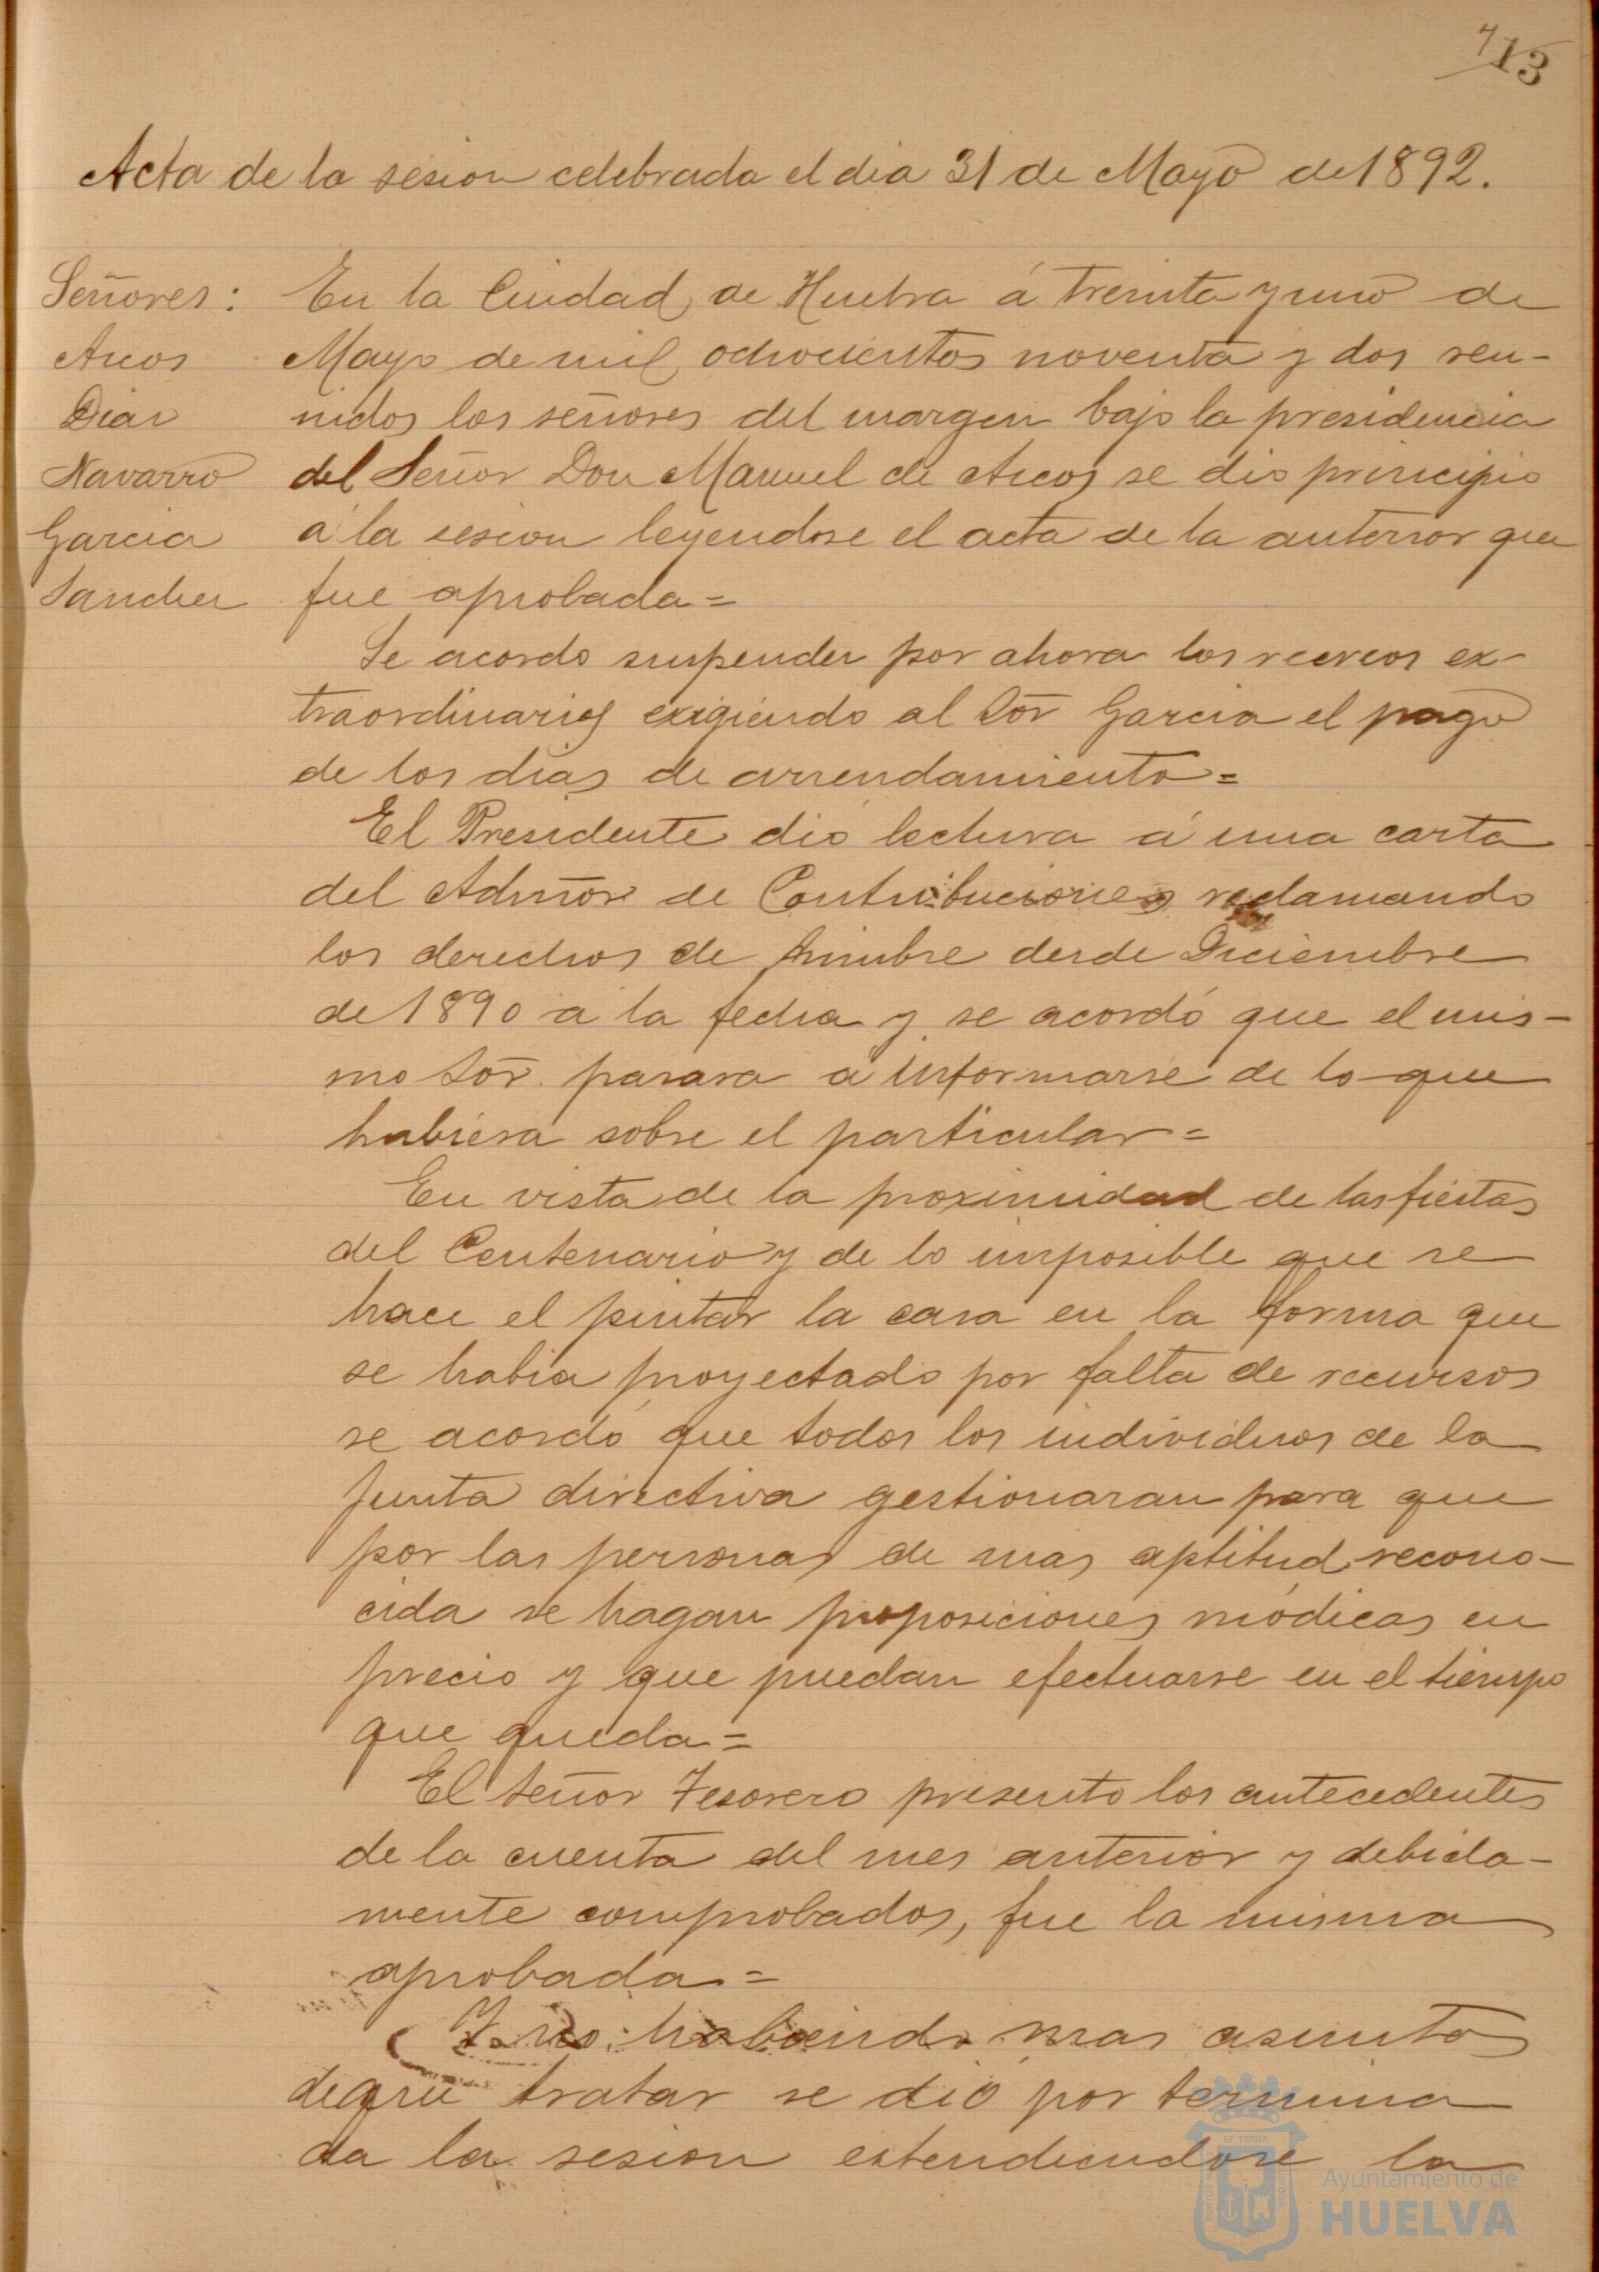 7 13
Acta de la sesion celebrada el dia 31 de Mayo de 1892.
Señores:
Arcos
Diaz
Navarro
Garcia
Sanchez
En la Ciudad de Huelva á treinta y uno de
Mayo de mil ochocientos noventa y dos reu-
nidos los señores del margen bajo la presidencia
del Señor Don Manuel de Arcos se dio principio
á la sesion leyendose el acta de la anterior que
fue aprobada=
Se acordo suspender por ahora los recreos ex-
traordinarios exigiendo al Sōr Garcia el pago
de los dias de arrendamiento=
El Presidente dió lectura á una carta
del Admōr de Contribuciones reclamando
los derechos de timbre desde Diciembre
de 1890 a la fecha y se acordó que el mis-
mo Sōr. pasara a informarse de lo que
hubiera sobre el particular=
En vista de la proximidad de las fiestas
del Centenario y de lo imposible que se
hace el pintar la casa en la forma que
se habia proyectado por falta de recursos
se acordó que todos los individuos de la
Junta directiva gestionaran para que
por las personas de mas aptitud recono-
cida se hagan proposiciones módicas en
precio y que puedan efectuarse en el tiempo
que queda=
El Señor Tesorero presento los antecedentes
de la cuenta del mes anterior y debida-
mente comprobados, fue la misma
aprobada=
Y no habiendo mas asuntos
de que tratar se dió por termina
da la sesion extendiendose la
Ayuntamiento de
HUELVA